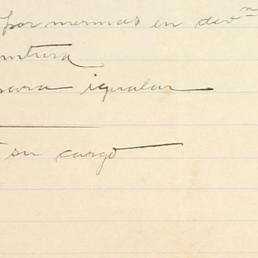 por mermas en divn
para igualar
su cargo